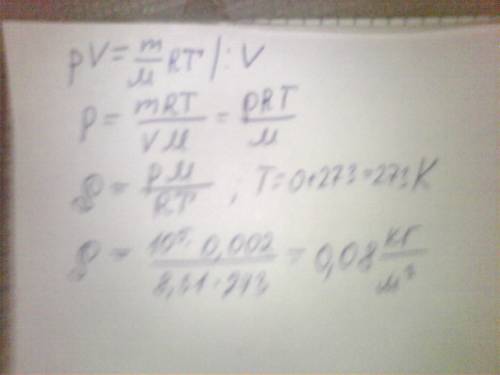 pV = m/M RT |: V
p = mRT/VM = ρRT/M
ρ = pM/RT ; T = 0+273=273K
ρ = 10⁵·0,002/8,31·273 = 0,08 кг/м³